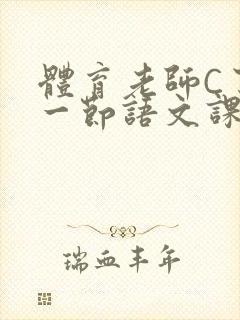 體育老師C
一節語文課
瑞血丰年